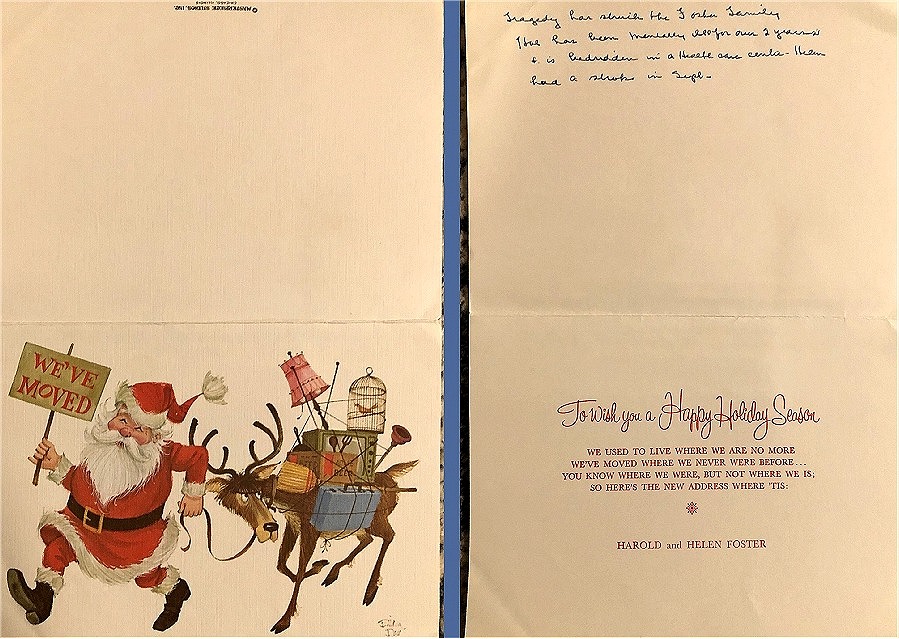 © MASTERPIECE STUDIOS, INC.
CHICAGO, ILLINOIS
WE'VE
MOVED
Tragedy has struck the Foster Family
Hal has been mentally ill for over 2 years
& is bedridden in a Health care center - Helen
had a stroke in Sept.
To Wish you a Happy Holiday Season
WE USED TO LIVE WHERE WE ARE NO MORE
WE'VE MOVED WHERE WE NEVER WERE BEFORE...
YOU KNOW WHERE WE WERE, BUT NOT WHERE WE IS;
SO HERE'S THE NEW ADDRESS WHERE 'TIS:
HAROLD and HELEN FOSTER